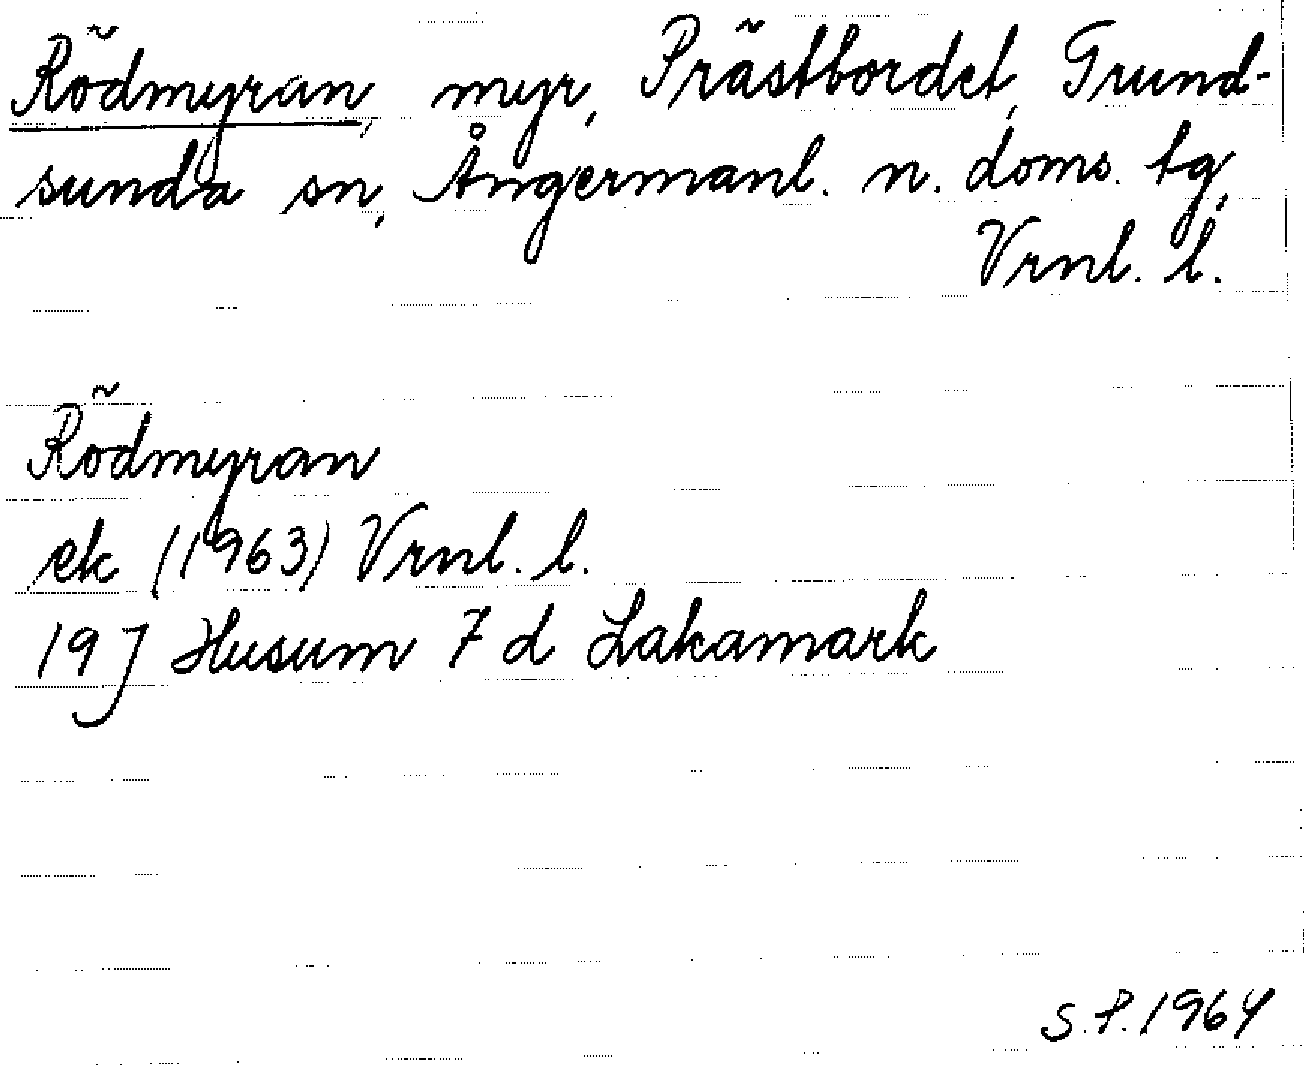 Rödmyran, myr, Prästbordet, Grund-
sunda sn, Ångermanl. n. doms. tg,
Vrnl. l.
Rödmyran
ek (1963) Vrnl. l.
19J Husum 7d Lakamark
S.P. 1964